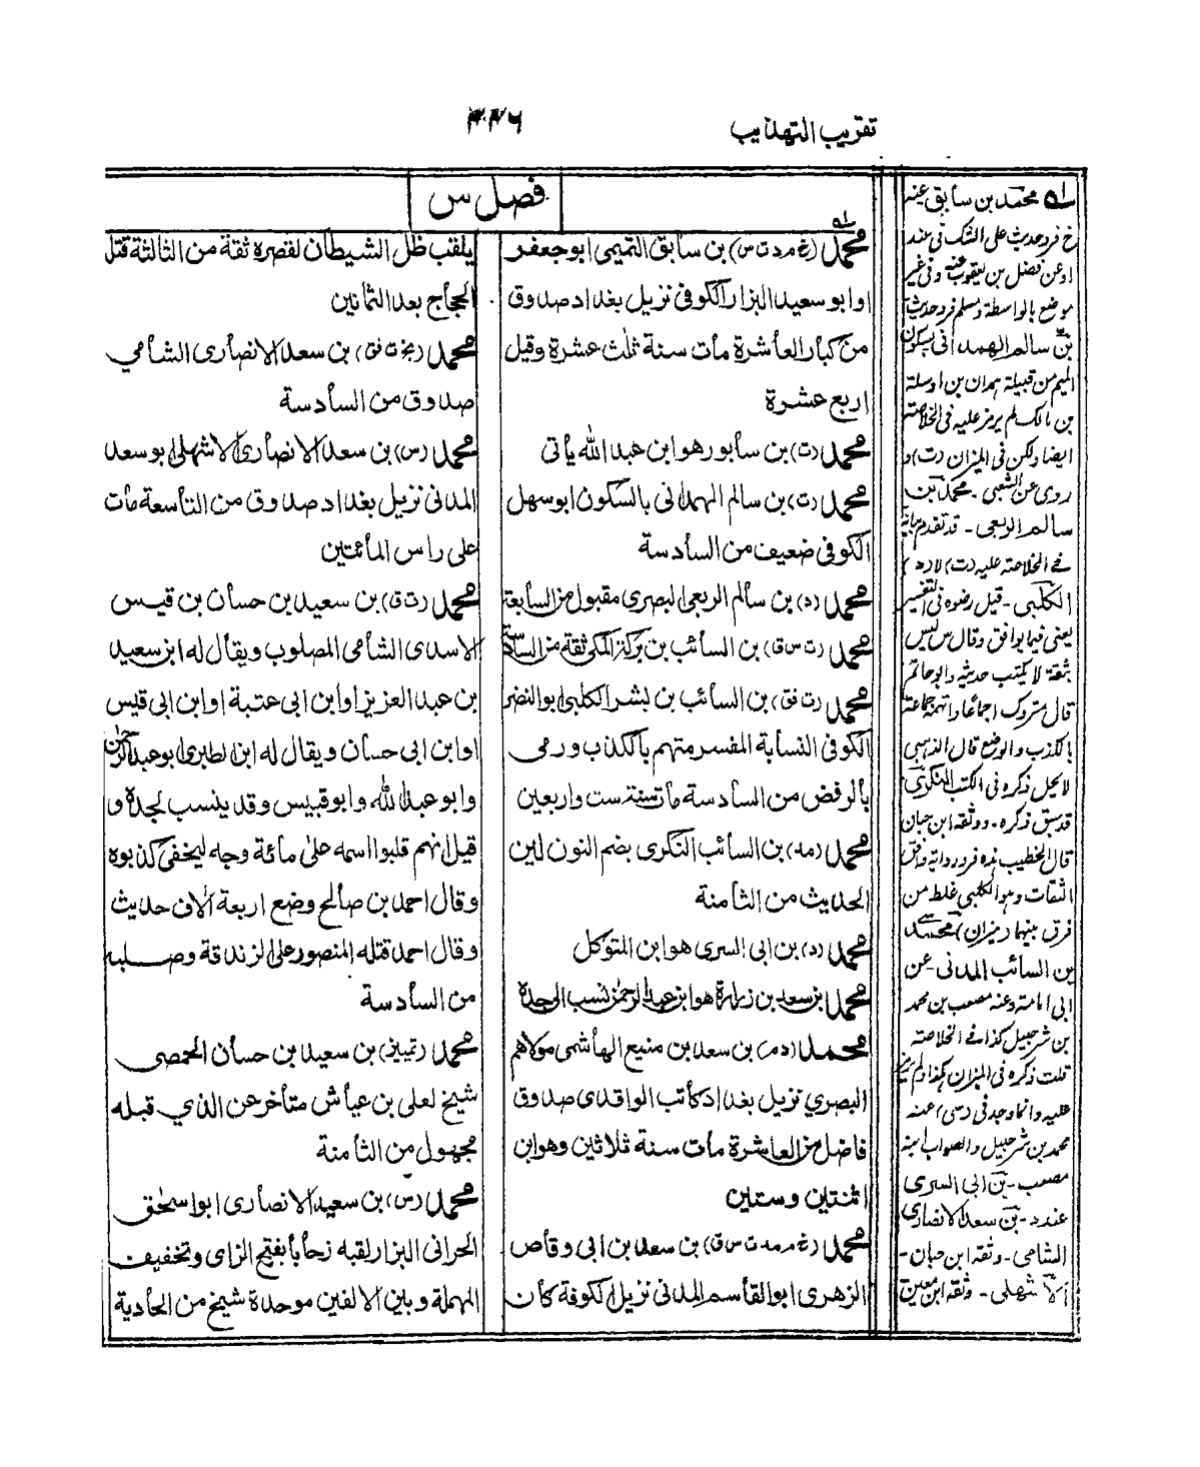 تقريب التهذيب
٤٤٦
فصل س
محمد (خ م د ت س) بن سابق التميمى ابو جعفر
او ابو سعيد البزار الكوفى نزيل بغداد صدوق
من كبار العاشرة مات سنة ثلث عشرة وقيل
اربع عشرة
محمد (ت) بن سابور هو ابن عبد الله يأتى
محمد (ت) بن سالم الهمدانى بالسكون ابو سهل
الكوفى ضعيف من السادسة
محمد (د) بن سالم الربعى البصرى مقبول من السابعة
محمد (ت س ق) بن السائب بن بركة المكى ثقة من السادسة
محمد (ت فق) بن السائب بن بشر الكلبى ابو النضر
الكوفى النسابة المفسر متهم بالكذب ورمى
بالرفض من السادسة مات سنة ست واربعين
محمد (مد) بن السائب النكرى بضم النون لين
الحديث من الثامنة
محمد (د) بن ابى السرى هو ابن المتوكل
محمد بن سعد بن زرارة هو ابن عبد الرحمن نسب الى جده
محمد (د م) بن سعد بن منيع الهاشمى مولاهم
البصري نزيل بغداد كاتب الواقدى صدوق
فاضل من العاشرة مات سنة ثلاثين وهو ابن
اثنتين وستين
محمد (خ م مد ت س ق) بن سعد بن ابى وقاص
الزهرى ابو القاسم المدنى نزيل الكوفة كان
يلقب ظل الشيطان لقصره ثقة من الثالثة قتله
الحجاج بعد الثمانين
محمد (بخ ت فق) بن سعد الانصارى الشامي
صدوق من السادسة
محمد (س) بن سعد الانصارى الاشهلى ابو سعد
المدنى نزيل بغداد صدوق من التاسعة مات
على راس المائتين
محمد (ت ق) بن سعيد بن حسان بن قيس
الاسدى الشامى المصلوب ويقال له ابن سعيد
بن عبد العزيز او ابن ابى عتبة او ابن ابى قيس
او ابن ابى حسان ويقال له ابن الطبرى ابو عبد الرحمن
وابو عبد الله وابو قيس وقد ينسب لجده و
قيل انهم قلبوا اسمه على مائة وجه ليخفى كذبوه
وقال احمد بن صالح وضع اربعة الاف حديث
وقال احمد قتله المنصور على الزندقة وصلبه
من السادسة
محمد (تمييز) بن سعيد بن حسان الحمصى
شيخ لعلى بن عياش متأخر عن الذي قبله
مجهول من الثامنة
محمد (س) بن سعيد الانصارى ابو اسحق
الحرانى البزار لقبه زحابا بفتح الزاى وتخفيف
المهملة وبين الالفين موحدة شيخ من الحادية
محمد بن سابق عنه
خ فرد حديث على الشك فى عنده
او عن فضل بن يعقوب عنه وفى غير
موضع بالواسطة ومسلم فرد حديث
بن سالم الهمدانى بسكون
الميم من قبيلة همدان بن اوسلة
بن مالك لم يرمز عليه فى الخلاصة
ايضا ولكن فى الميزان (ت) و
روى عن الشعبى - محمد بن
سالم الربعى - قد تقدم
فى الخلاصة عليه (ت) لا (د)
الكلبى - قيل رضوه فى التفسير
يعنى فيما يوافق وقال س ليس
بثقة لا يكتب حديثه وابو حاتم
قال متروك اجماعا واتهمه جماعة
بالكذب والوضع قال الذهبى
لا يحل ذكره فى الكتب النكرى
قد سبق ذكره - ووثقه ابن حبان
قال الخطيب
الثقات وهو الكلبى غلط من
فرق بينهما (ميزان) محمد
بن السائب المدنى - عن
ابى امامة وعنه مصعب بن محمد
بن شرجبيل كذا فى الخلاصة
قلت ذكره فى الميزان هكذا ولم يرمز
عليه وانما وجد فى (س) عنه
محمد بن شرحبيل والصواب ابنه
مصعب - بن ابى السرى
عند د - بن سعد الانصارى
الشامى - وثقه ابن حبان -
الاشهلى - وثقه ابن معين